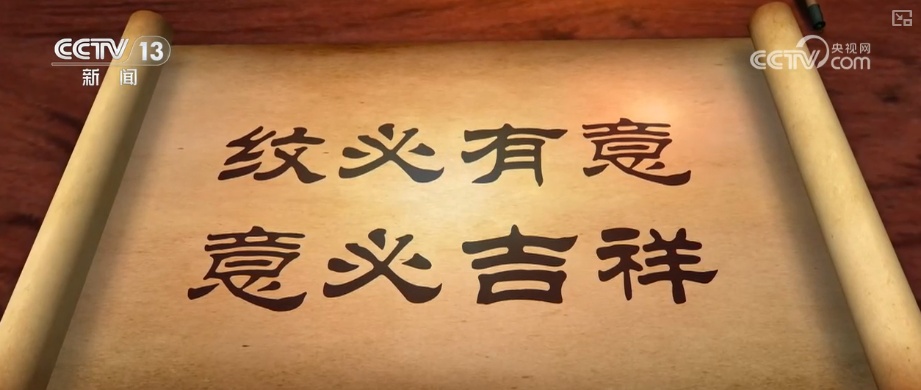 CCTV 13
新闻
央视网
CCTV.com
纹必有意
意必吉祥